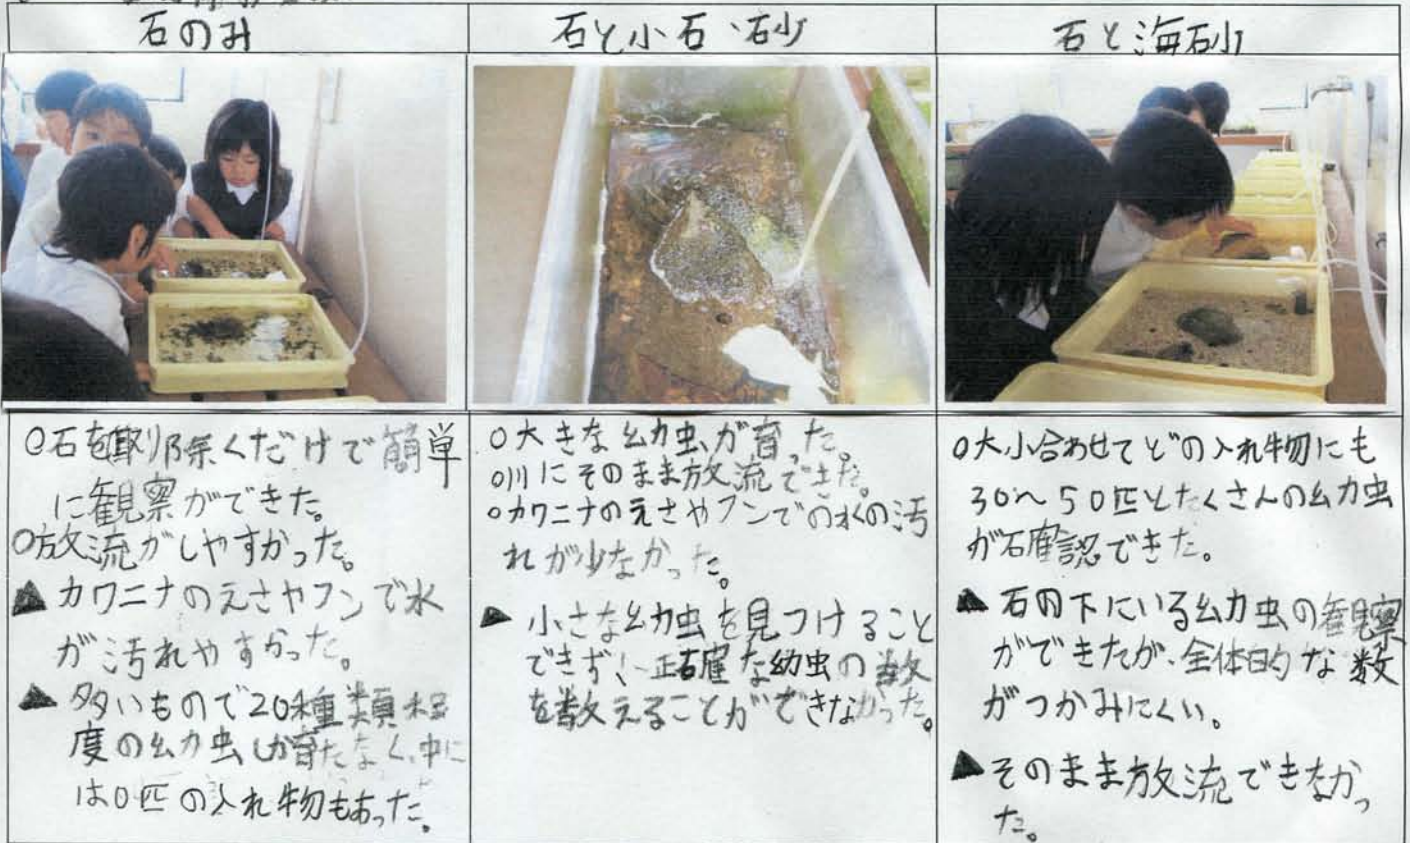 石のみ
石と小石・砂
石と海砂
○石を取り除くだけで簡単
に観察ができた。
○放流がしやすかった。
▲カワニナのえさやフンで水
が汚れやすかった。
▲多いもので20種類程
度の幼虫しか育たなく、中に
は0匹の入れ物もあった。
○大きな幼虫が育った。
○川にそのまま放流できた。
○カワニナのえさやフンでの水の汚
れが少なかった。
▲小さな幼虫を見つけること
できず、正確な幼虫の数
を数えることができなかった。
○大小合わせてどの入れ物にも
30〜50匹とたくさんの幼虫
が確認できた。
▲石の下にいる幼虫の観察
ができたが、全体的な数
がつかみにくい。
▲そのまま放流できなかっ
た。